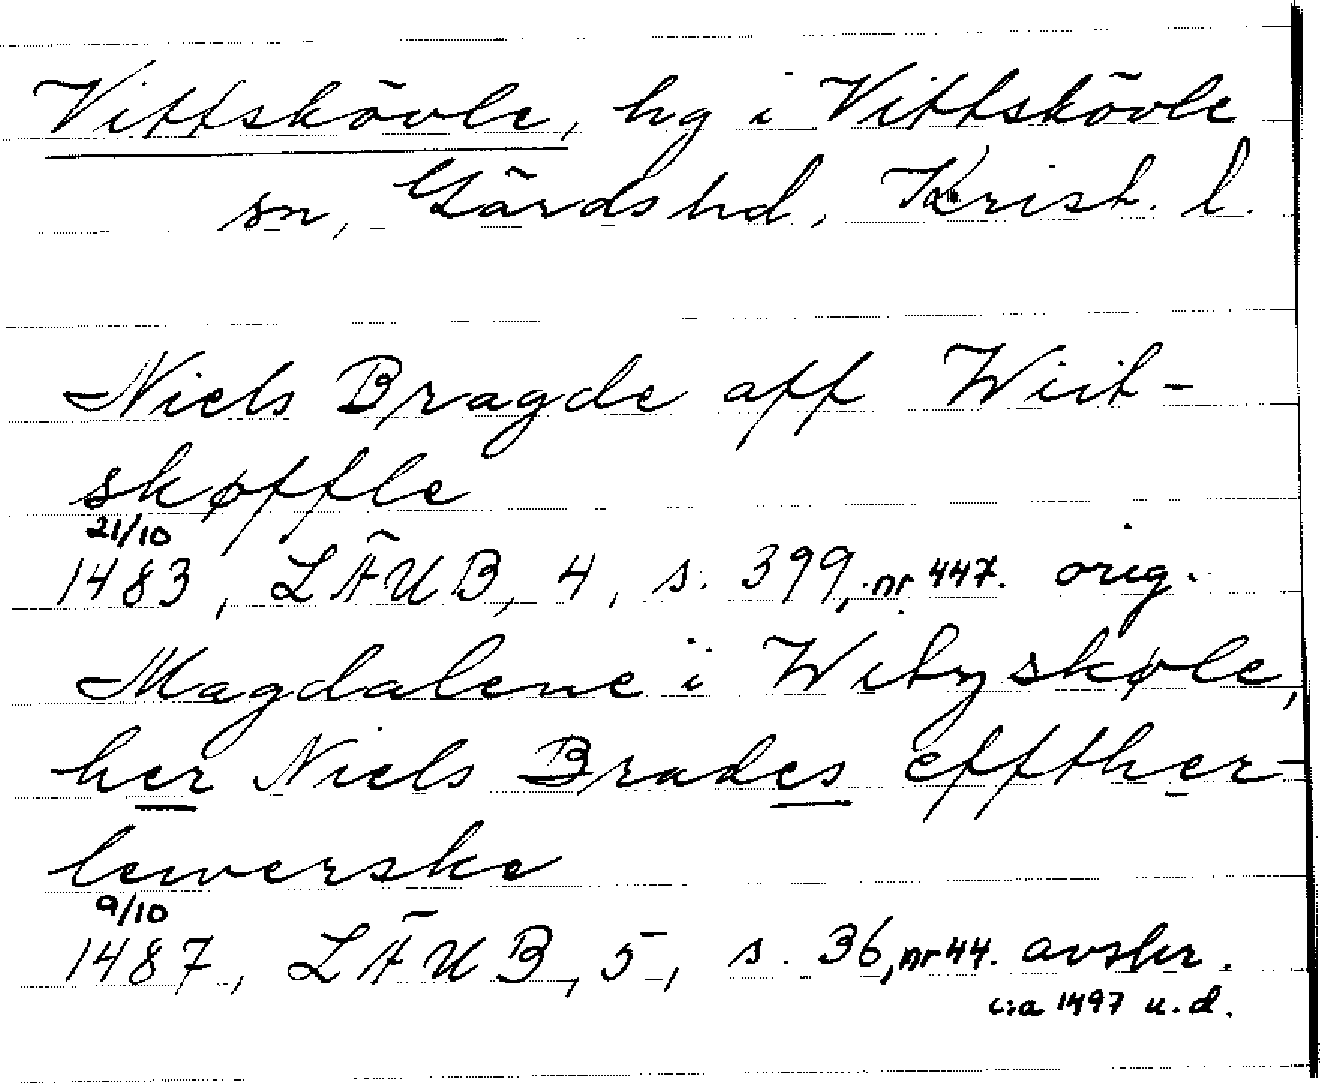 Vittskövle, hg i Vittskövle
sn, Gärds hd, Krist. l.
Niels Bragde aff Wiit-
skøffle
21/10
1483, LÄUB, 4, s. 399, nr 447. orig.
Magdalene i Witzskøle,
her Niels Brades effther-
lewerske
9/10
1487, LÄUB, 5, s. 36, nr 44. avskr.
ca 1497 u.d.